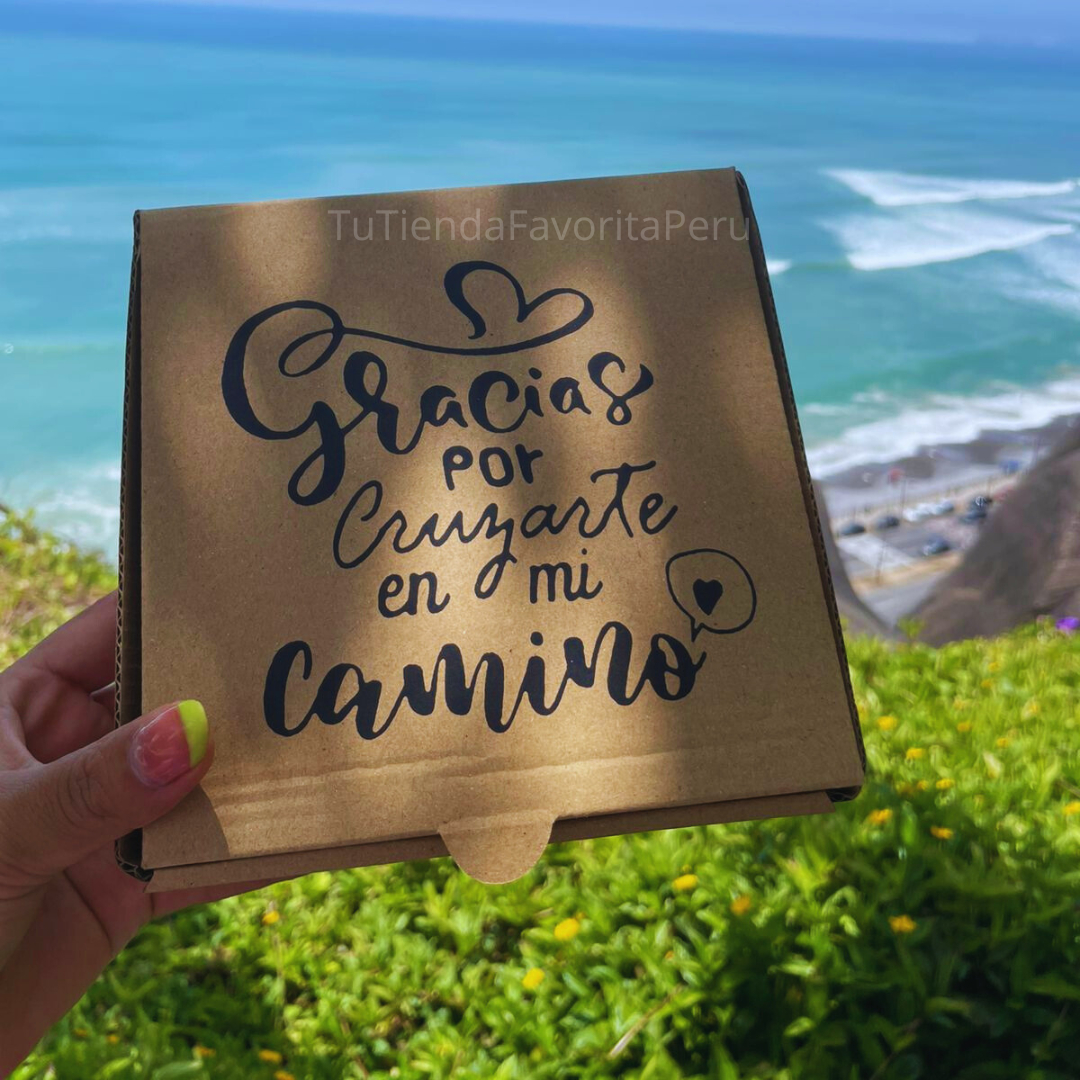 TuTiendaFavoritaPeru
Gracias
por
Cruzarte
en mi
Camino